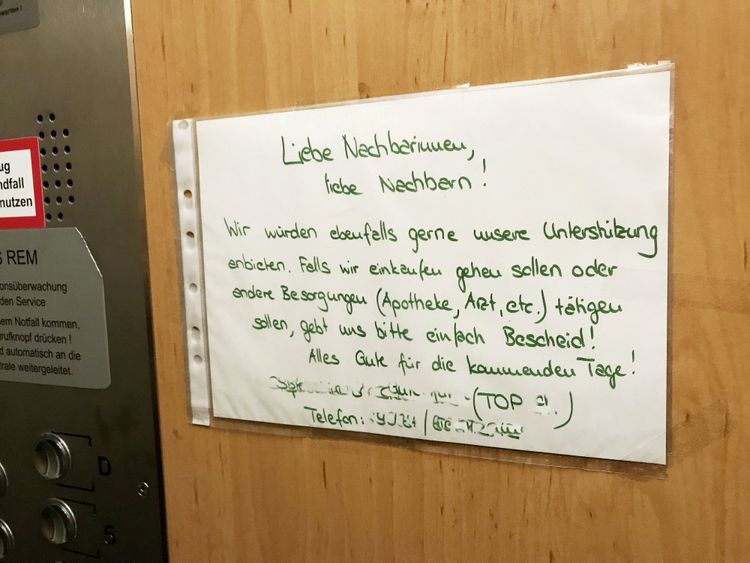 werten!
ug
ndfall
nutzen
S REM
onsüberwachung
den Service
em Notfall kommen,
rufknopf drücken!
d automatisch an die
trale weitergeleitet.
D
S
Liebe Nachbarinnen,
liebe Nachbarn!
Wir würden ebenfalls gerne unsere Unterstützung
anbieten. Falls wir einkaufen gehen sollen oder
andere Besorgungen (Apotheke, Arzt, etc.) tätigen
sollen, gebt uns bitte einfach Bescheid!
Alles Gute für die kommenden Tage!
(TOP )
Telefon: